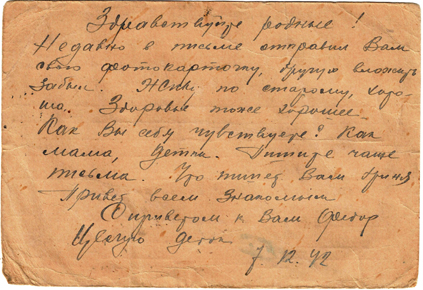 Здравствуйте родные!
Недавно в письме отправил Вам
свою фотокарточку, другую вложить
забыл. Живу по старому, хоро-
шо. Здоровье тоже хорошее.
Как Вы себя чувствуете? Как
мама, детки. Пишите чаще
письма. Что пишет Вам Гриня
Привет всем знакомым
С приветом к Вам Федор
Целую деток
7.12.42